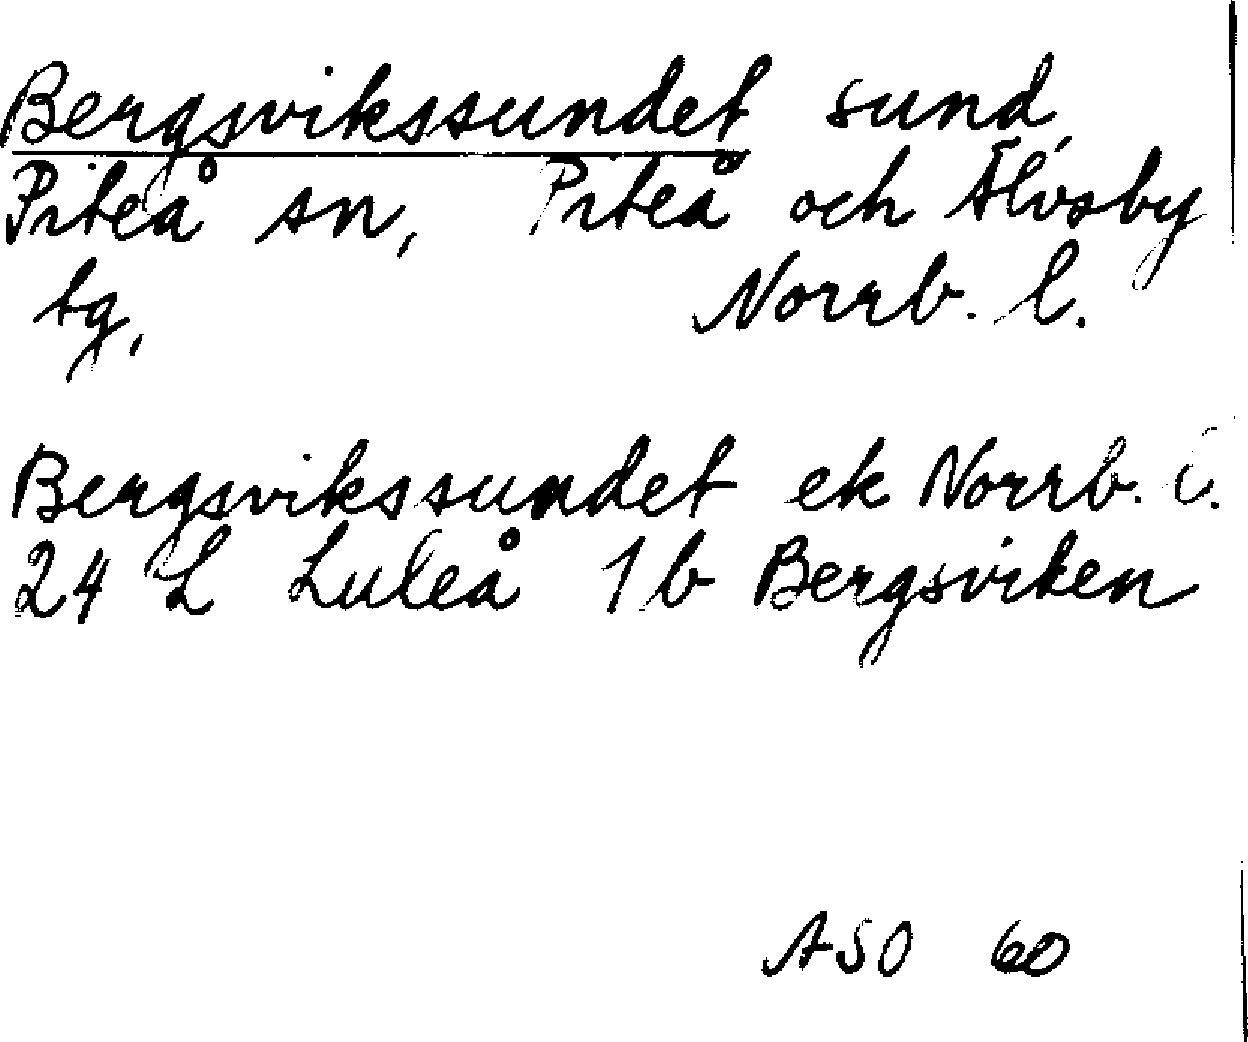 Bergsvikssundet sund,
Piteå sn, Piteå och Älvsby
tg, Norrb. l.
Bergsvikssundet ek Norrb. l.
24 L Luleå 1b Bergsviken
ASO 60